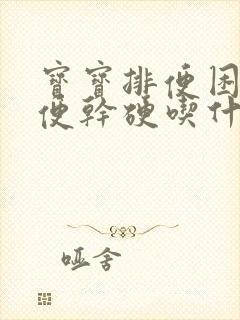 寶寶排便困
便幹硬喫什
哑舍